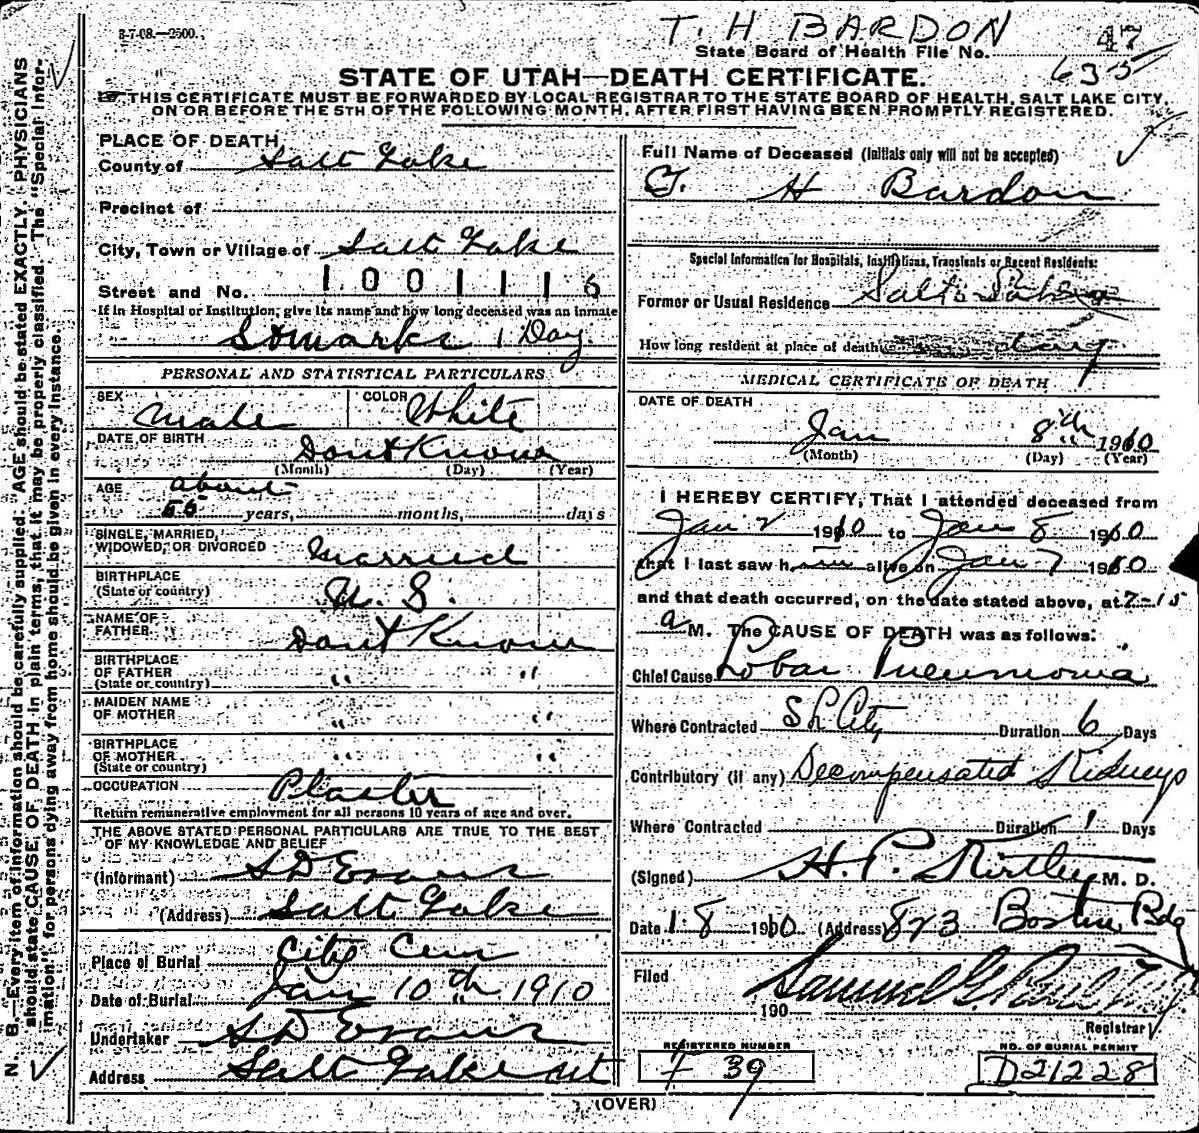 3-7-08.—2500.
T. H BARDON
State Board of Health File No. 47
635
STATE OF UTAH—DEATH CERTIFICATE.
THIS CERTIFICATE MUST BE FORWARDED BY LOCAL REGISTRAR TO THE STATE BOARD OF HEALTH, SALT LAKE CITY,
ON OR BEFORE THE 5TH OF THE FOLLOWING MONTH, AFTER FIRST HAVING BEEN PROMPTLY REGISTERED.
N. B.—Every item of information should be carefully supplied. AGE should be stated EXACTLY. PHYSICIANS
should state CAUSE OF DEATH in plain terms, that it may be properly classified. The "Special Infor-
mation" for persons dying away from home should be given in every instance.
PLACE OF DEATH
County of Salt Lake
Precinct of
City, Town or Village of Salt Lake
Street and No. 1001116
If in Hospital or Institution, give its name and how long deceased was an inmate
St Marks 1 Day
PERSONAL AND STATISTICAL PARTICULARS
SEX Male COLOR White
DATE OF BIRTH Dont Know
(Month) (Day) (Year)
AGE about
55 years, months, days
SINGLE, MARRIED,
WIDOWED, OR DIVORCED Married
BIRTHPLACE
(State or country) U. S.
NAME OF
FATHER Dont Know
BIRTHPLACE
OF FATHER
(State or country) " "
MAIDEN NAME
OF MOTHER " "
BIRTHPLACE
OF MOTHER
(State or country) " "
OCCUPATION Plaster
Return remunerative employment for all persons 10 years of age and over.
THE ABOVE STATED PERSONAL PARTICULARS ARE TRUE TO THE BEST
OF MY KNOWLEDGE AND BELIEF
(Informant) S D Evans
(Address) Salt Lake
Place of Burial City Cem
Date of Burial Jan 10th 1910
Undertaker S D Evans
Address Salt Lake ut
Full Name of Deceased (Initials only will not be accepted)
T. H Bardon
Special Information for Hospitals, Institutions, Transients or Recent Residents:
Former or Usual Residence Salt
How long resident at place of death day
MEDICAL CERTIFICATE OF DEATH
DATE OF DEATH
Jan 8th 1910
(Month) (Day) (Year)
I HEREBY CERTIFY, That I attended deceased from
Jan 2 1910 to Jan 8 1910
that I last saw h im alive on Jan 7 1910
and that death occurred, on the date stated above, at 7-15
a M. The CAUSE OF DEATH was as follows:
Chief Cause Lobar Pneumonia
Where Contracted S L City Duration 6 Days
Contributory (if any) Decompensated Kidneys
Where Contracted Duration 1 Days
(Signed) H. P. Kirtley M. D.
Date 1 8 1910 (Address) 873 Boston Bdg
Filed Samuel G. Paul
190
Registrar
REGISTERED NUMBER
F 39
NO. OF BURIAL PERMIT
D21228
(OVER)